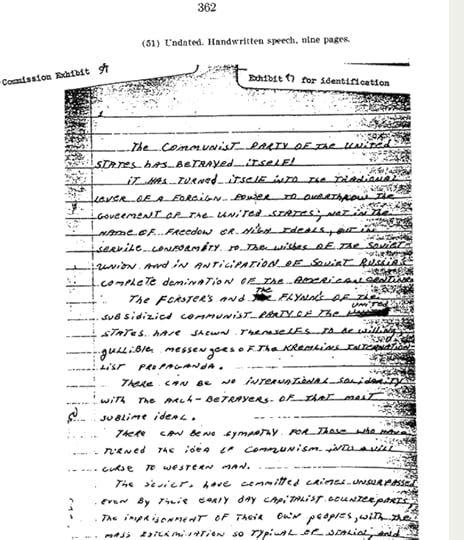 362
(51) Undated. Handwritten speech, nine pages.
Commission Exhibit 97
Exhibit 17 for identification
1
The COMMUNIST PARTY OF THE UNITED
STATES HAS BETRAYED ITSELF!
IT HAS TURNED ITSELF INTO THE TRADIONAL
LEVER OF A FOREIGN POWER TO OVERTHROW THE
GOVERMENT OF THE UNITED STATES; NOT IN THE
NAME OF FREEDOM OR HIGH IDEALS, BUT IN
SERVILE CONFORMITY TO THE WISHES OF THE SOVIET
UNION AND IN ANTICIPATION OF SOVIET RUSSIA'S
COMPLETE DOMINATION OF THE AMERICAN CONTINENT
THE FORSTER'S AND the FLYNN'S OF THE
SUBSIDIZIED COMMUNIST PARTY OF THE UNITED
STATES HAVE SHOWN THEMSELFS TO BE WILLING,
GULLIBLE MESSENGERS OF THE KREMLINS INTERNATION-
LIST PROPAGANDA.
THERE CAN BE NO INTERNATIONAL SOLIDARITY
WITH THE ARCH-BETRAYERS OF THAT MOST
SUBLIME IDEAL.
THERE CAN BE NO SYMPATHY FOR THOSE WHO HAVE
TURNED THE IDEA OF COMMUNISM INTO A VILL
CURSE TO WESTERN MAN.
THE SOVIETS HAVE COMMITTED CRIMES UNSURPASSED
EVEN BY THEIR EARLY DAY CAPITALIST COUNTERPARTS,
THE IMPRISONMENT OF THEIR OWN PEOPLES, WITH THE
MASS EXTERMINATION SO TYPICAL OF STALIN, AND